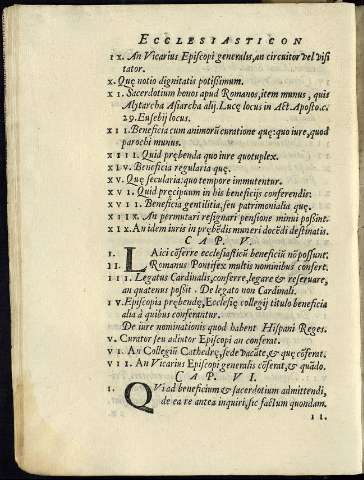 ECCLESIASTICON
IX. An Vicarius Episcopi generalis, an circuitor vel visi
tator.
X. Quę notio dignitatis potissimum.
XI. Sacerdotium honos apud Romanos, item munus, quis
Alytarcha Asiarcha alij. Lucę locus in Act. Aposto. c.
29. Eusebij locus.
XII. Beneficia cum animorū curatione quę: quo iure, quod
parochi munus.
XIII. Quid prębenda quo iure quotuplex.
XIV. Beneficia regularia quę.
XV. Quę secularia: quo tempore immutentur.
XVI. Quid pręcipium in his beneficijs conferendis:
XVII. Beneficia gentilitia, seu patrimonialia quę.
XIIX. An permutari resignari pensione minui possint.
XIX. An idem iuris in prębēdis muneri docēdi destinatis.
CAP. V.
I. LAici cōferre ecclesiasticū beneficiū nō possunt.
II. Romanus Pontifex multis nominibus confert.
III. Legatus Cardinalis, conferre, legare & reseruare,
an quatenus possit. De legato non Cardinali.
IV. Episcopia prębendę, Ecclesię collegij titulo beneficia
alia à quibus conferantur.
De iure nominationis quod habent Hispani Reges.
V. Curator seu adiutor Episcopi an conferat.
VI. An Collegiū Cathedrę, sede vacāte, & quę cōferat.
VII. An Vicarius Episcopi generalis cōferat, & quādo.
CAP. VI.
I. QVi ad beneficium & sacerdotium admittendi,
de ea re antea inquiri, sic factum quondam.
II.